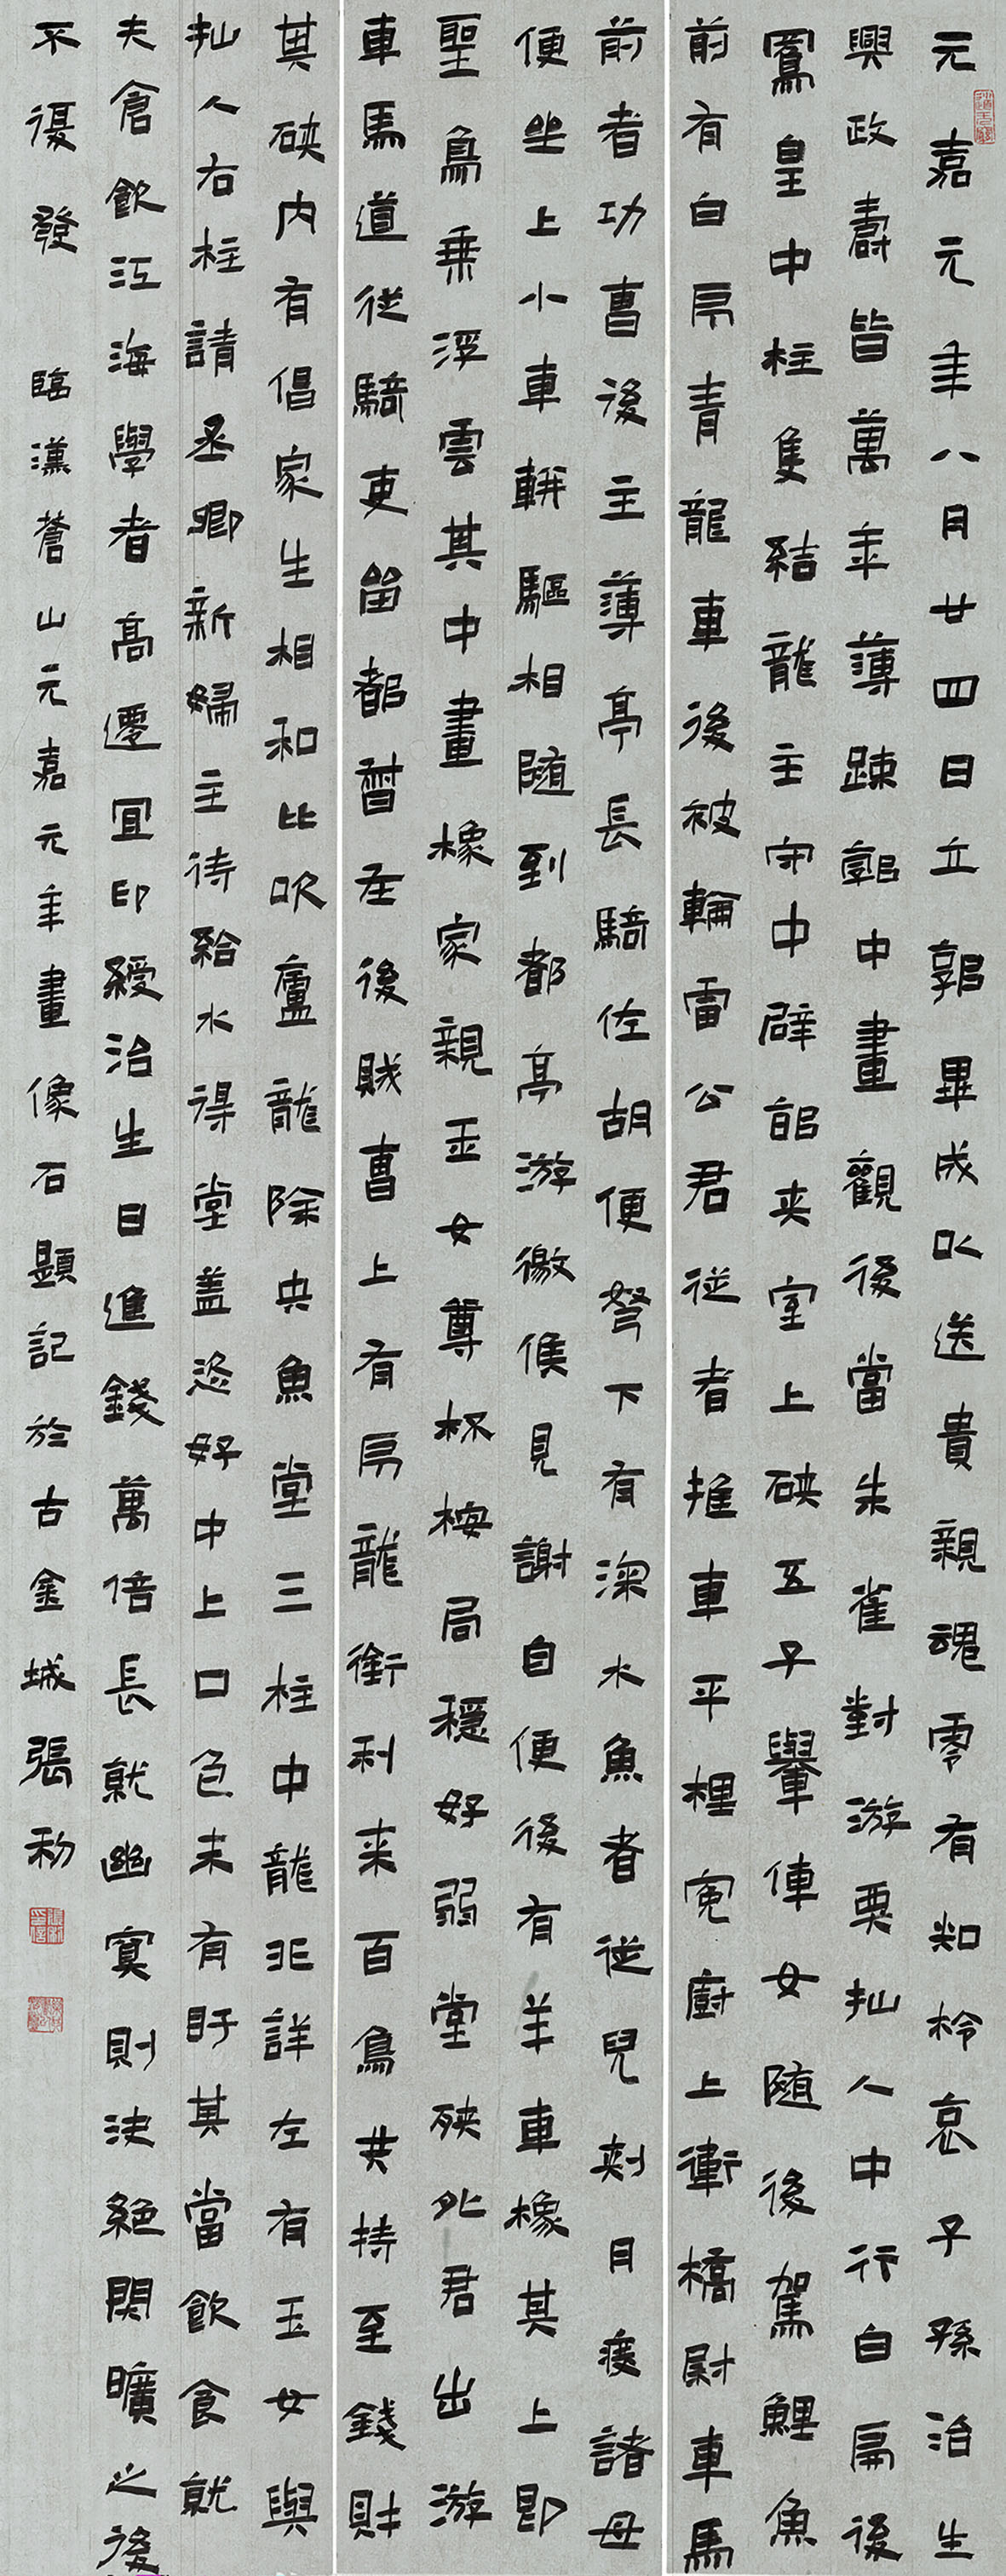 元嘉元年八月廿四日立郭畢成以送貴親魂零有知柃哀子孫治生
興政壽皆萬年薄踈郭中畫觀後當朱雀對游栗扯人中行白虎後
鳳皇中柱隻結龍主守中辟邪夾室上硤五子轝俥女隨後駕鯉魚
前有白虎青龍車後被輪雷公君從者推車平梩冤廚上衛橋尉車馬
前者功曹後主薄亭長騎佐胡便弩下有深水魚者從兒刾月疫諸母
便坐上小車軿驅相隨到都亭游徼候見謝自便後有羊車橡其上即
聖鳥乘浮雲其中畫橡家親玉女尊杯桉局穩好弱堂硤外君出游
車馬道從騎吏留都督在後賊曹上有虎龍銜利来百鳥共持至錢財
其硤内有倡家生相和比吹廬龍除央魚堂三柱中龍非詳左有玉女與
扯人右柱請丞卿新婦主待給水得堂蓋恣好中上口色末有盱其當飲食就
夫倉飲江海學者高遷宜印綬治生日進錢萬倍長就幽冥則決絕閉曠之後
不復發 臨漢蒼山元嘉元年畫像石題記於古金城張